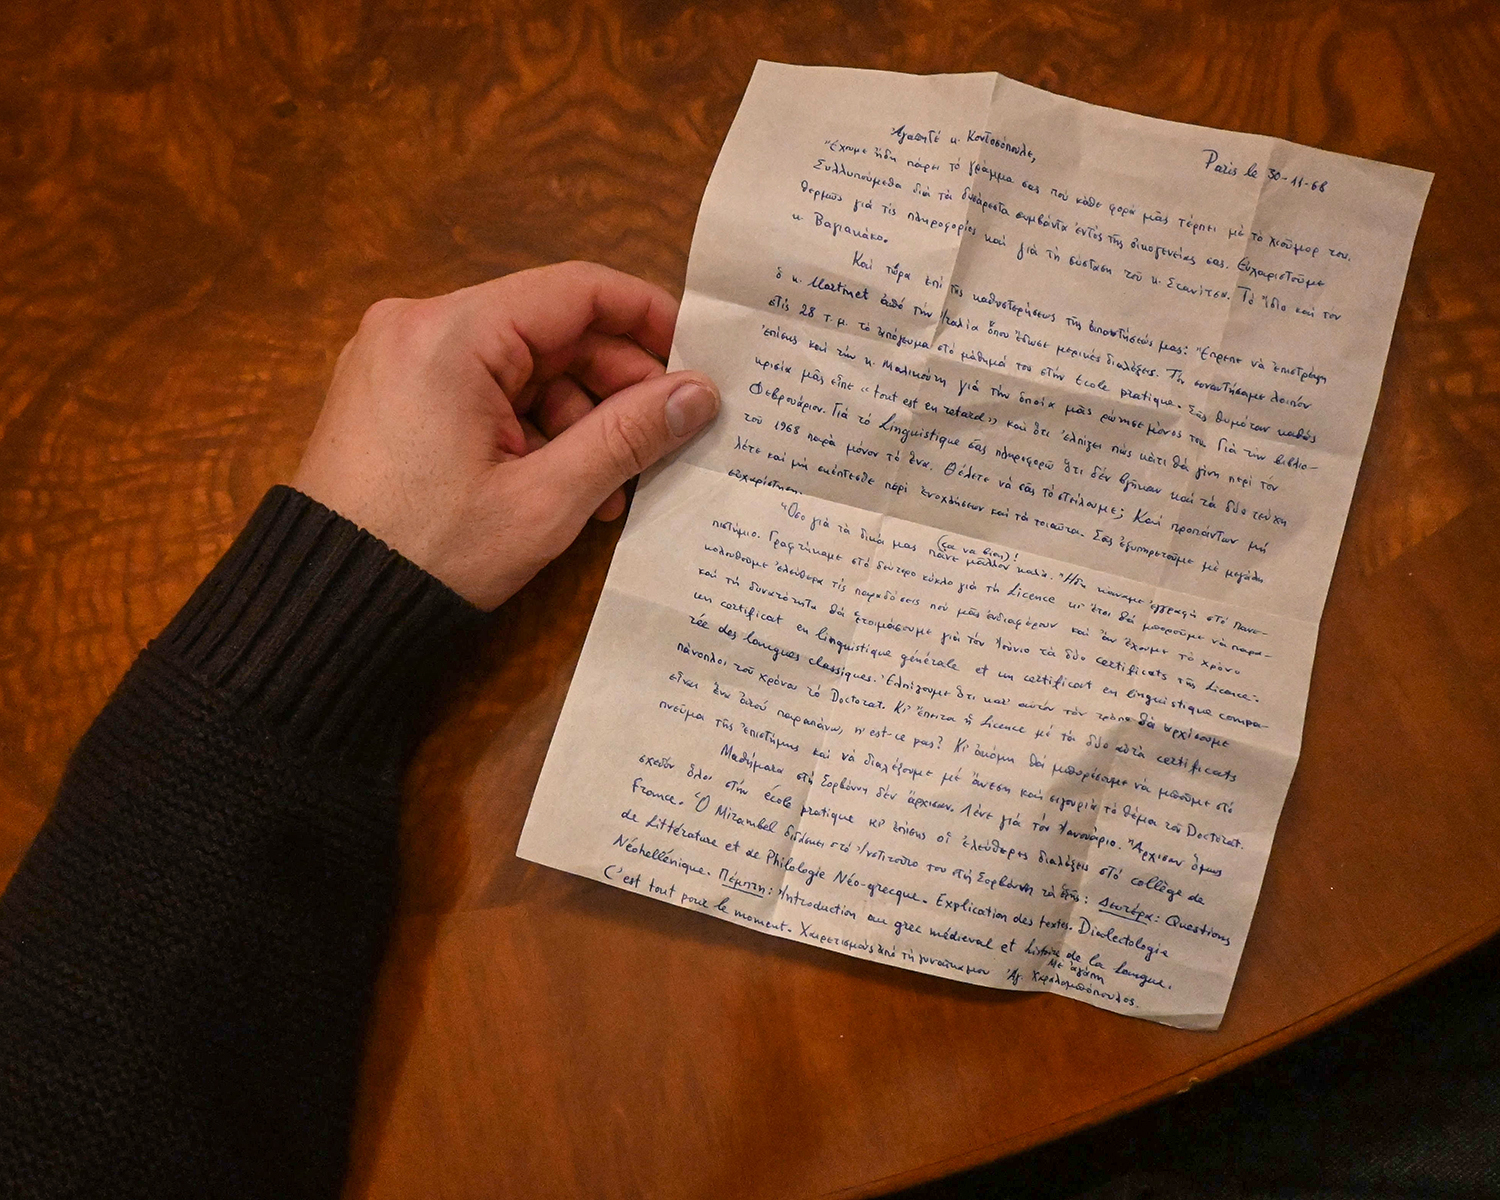 Paris le 30-11-68
Ἀγαπητέ κ. Κοντοσόπουλε,
Ἔχουμε ἤδη πάρει τό γράμμα σας πού κάθε φορά μᾶς τέρπει μέ τό χιοῦμορ του.
Συλλυπούμεθα διά τά δυσάρεστα συμβάντα ἐντός τῆς οἰκογενείας σας. Εὐχαριστοῦμε
θερμῶς γιά τίς πληροφορίες καί γιά τή σύσταση τοῦ κ. Στανίτσα. Τό ἴδιο καί τόν
κ. Βαγιακάκο.
Καί τώρα ἐπί τῆς καθυστερήσεως τῆς ἀπαντήσεώς μας: Ἔπρεπε νά ἐπιστρέψη
ὁ κ. Martinet ἀπό τήν Ἰταλία ὅπου ἔδωσε μερικές διαλέξεις. Τόν συναντήσαμε λοιπόν
στίς 28 τ.μ. τό ἀπόγευμα στό μάθημά του στήν École pratique. Σᾶς θυμόταν καθώς
ἐπίσης καί τήν κ. Μαλικούτη γιά τήν ὁποία μᾶς ρώτησε μόνος του. Γιά τήν βιβλιο-
κρισία μᾶς εἶπε «tout est en retard» καί ὅτι ἐλπίζει πώς κάτι θά γίνη περί τόν
Φεβρουάριον. Γιά τό Linguistique σᾶς πληροφορῶ ὅτι δέν βγῆκαν καί τά δύο τεύχη
τοῦ 1968 παρά μόνον τό ἕνα. Θέλετε νά σᾶς τό στείλουμε; Καί προπάντων μή
λέτε καί μή σκέπτεσθε περί ἐνοχλήσεων καί τά τοιαῦτα. Σᾶς ἐξυπηρετοῦμε μέ μεγάλη
εὐχαρίστηση.
Ὅσο γιά τά δικά μας πᾶνε μᾶλλον καλά. (ça va bien)! Ἤδη κάναμε ἐγγραφή στό Πανε-
πιστήμιο. Γραφτήκαμε στό δεύτερο κύκλο γιά τή Licence κι' ἔτσι θά μπορούμε νά παρα-
κολουθοῦμε ἐλεύθερα τίς παραδόσεις πού μᾶς ἐνδιαφέρουν καί ἄν ἔχουμε τό χρόνο
καί τή δυνατότητα θά ἑτοιμάσουμε γιά τόν Ἰούνιο τά δύο certificats τῆς Licence:
un certificat en linguistique générale et un certificat en linguistique compa-
rée des langues classiques. Ἐλπίζουμε ὅτι κατ' αὐτόν τόν τρόπο θά ἀρχίσουμε
πάνοπλοι τοῦ χρόνου τό Doctorat. Κι' ἔπειτα ἡ Licence μέ τά δύο αὐτά certificats
εἶναι ἕνα ἀτού παραπάνω, n'est-ce pas? Κι' ἀκόμη θά μπορέσουμε νά μποῦμε στό
πνεῦμα τῆς ἐπιστήμης καί νά διαλέξουμε μέ ἄνεση καί σιγουριά τό θέμα τοῦ Doctorat.
Μαθήματα στή Σορβόννη δέν ἄρχισαν. Λένε γιά τόν Ἰανουάριο. Ἄρχισαν ὅμως
σχεδόν ὅλοι στήν école pratique κι' ἐπίσης οἱ ἐλεύθερες διαλέξεις στό collège de
France. Ὁ Mirambel διδάσκει στό Ἰνστιτοῦτο του στή Σορβόννη τά ἑξῆς: Δευτέρα: Questions
de Littérature et de Philologie Néo-grecque. Explication des textes. Dialectologie
Néohellénique. Πέμπτη: Introduction au grec médieval et histoire de la langue.
C'est tout pour le moment. Χαιρετισμούς ἀπό τή γυναῖκα μου
Μέ ἀγάπη
Ἀγ. Χαραλαμπόπουλος.